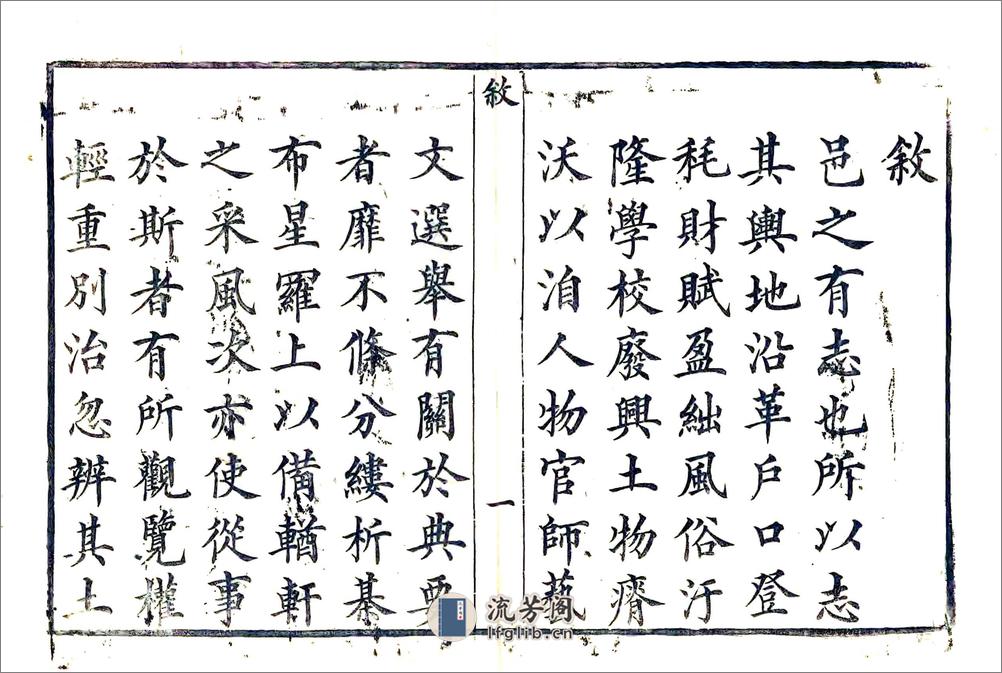 敘
邑之有志也所以志
其輿地沿革戶口登
耗財賦盈絀風俗汙
隆學校廢興土物瘠
沃以洎人物官師藝
敘
一
文選舉有關於典要
者靡不條分縷析棊
布星羅上以備輶軒
之采風次亦使從事
於斯者有所觀覽權
輕重別治忽辨其土
流芳阁
lfglib.cn